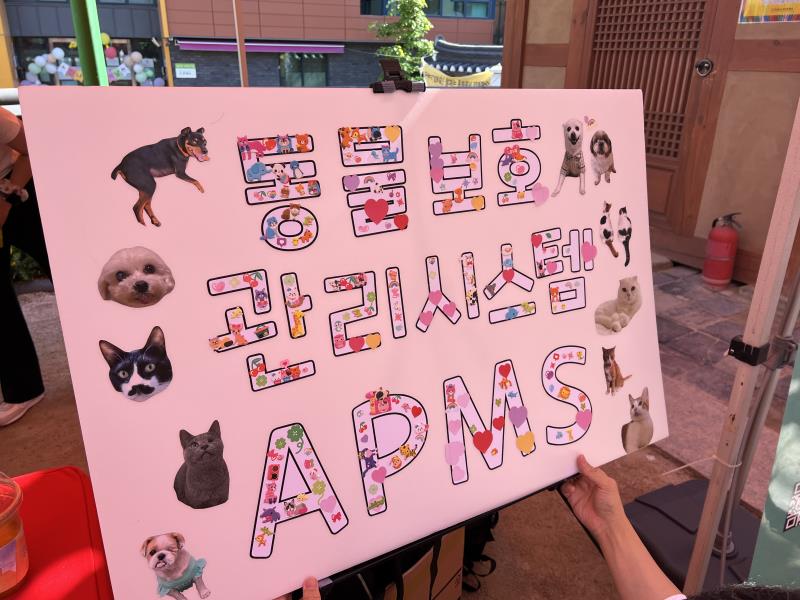 동물보호
관리시스템
APMS